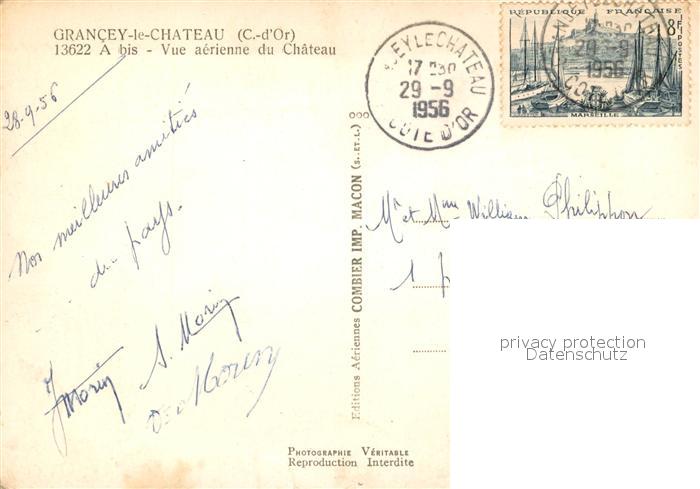 GRANÇEY-le-CHATEAU (C.-d'Or)
13622 A bis - Vue aérienne du Château
28-9-56
Nos meilleures amitiés
du pays.
J Morin
S. Morin
EYLECHATEAU
17 H30
29 -9
1956
COTE D'OR
RÉPUBLIQUE FRANÇAISE
8F
POSTES
MARSEILLE
29 -9
1956
Editions Aériennes COMBIER IMP. MACON (S.-ET-L.)
Mr et Mme William Philippon
1
privacy protection
Datenschutz
PHOTOGRAPHIE VÉRITABLE
Reproduction Interdite